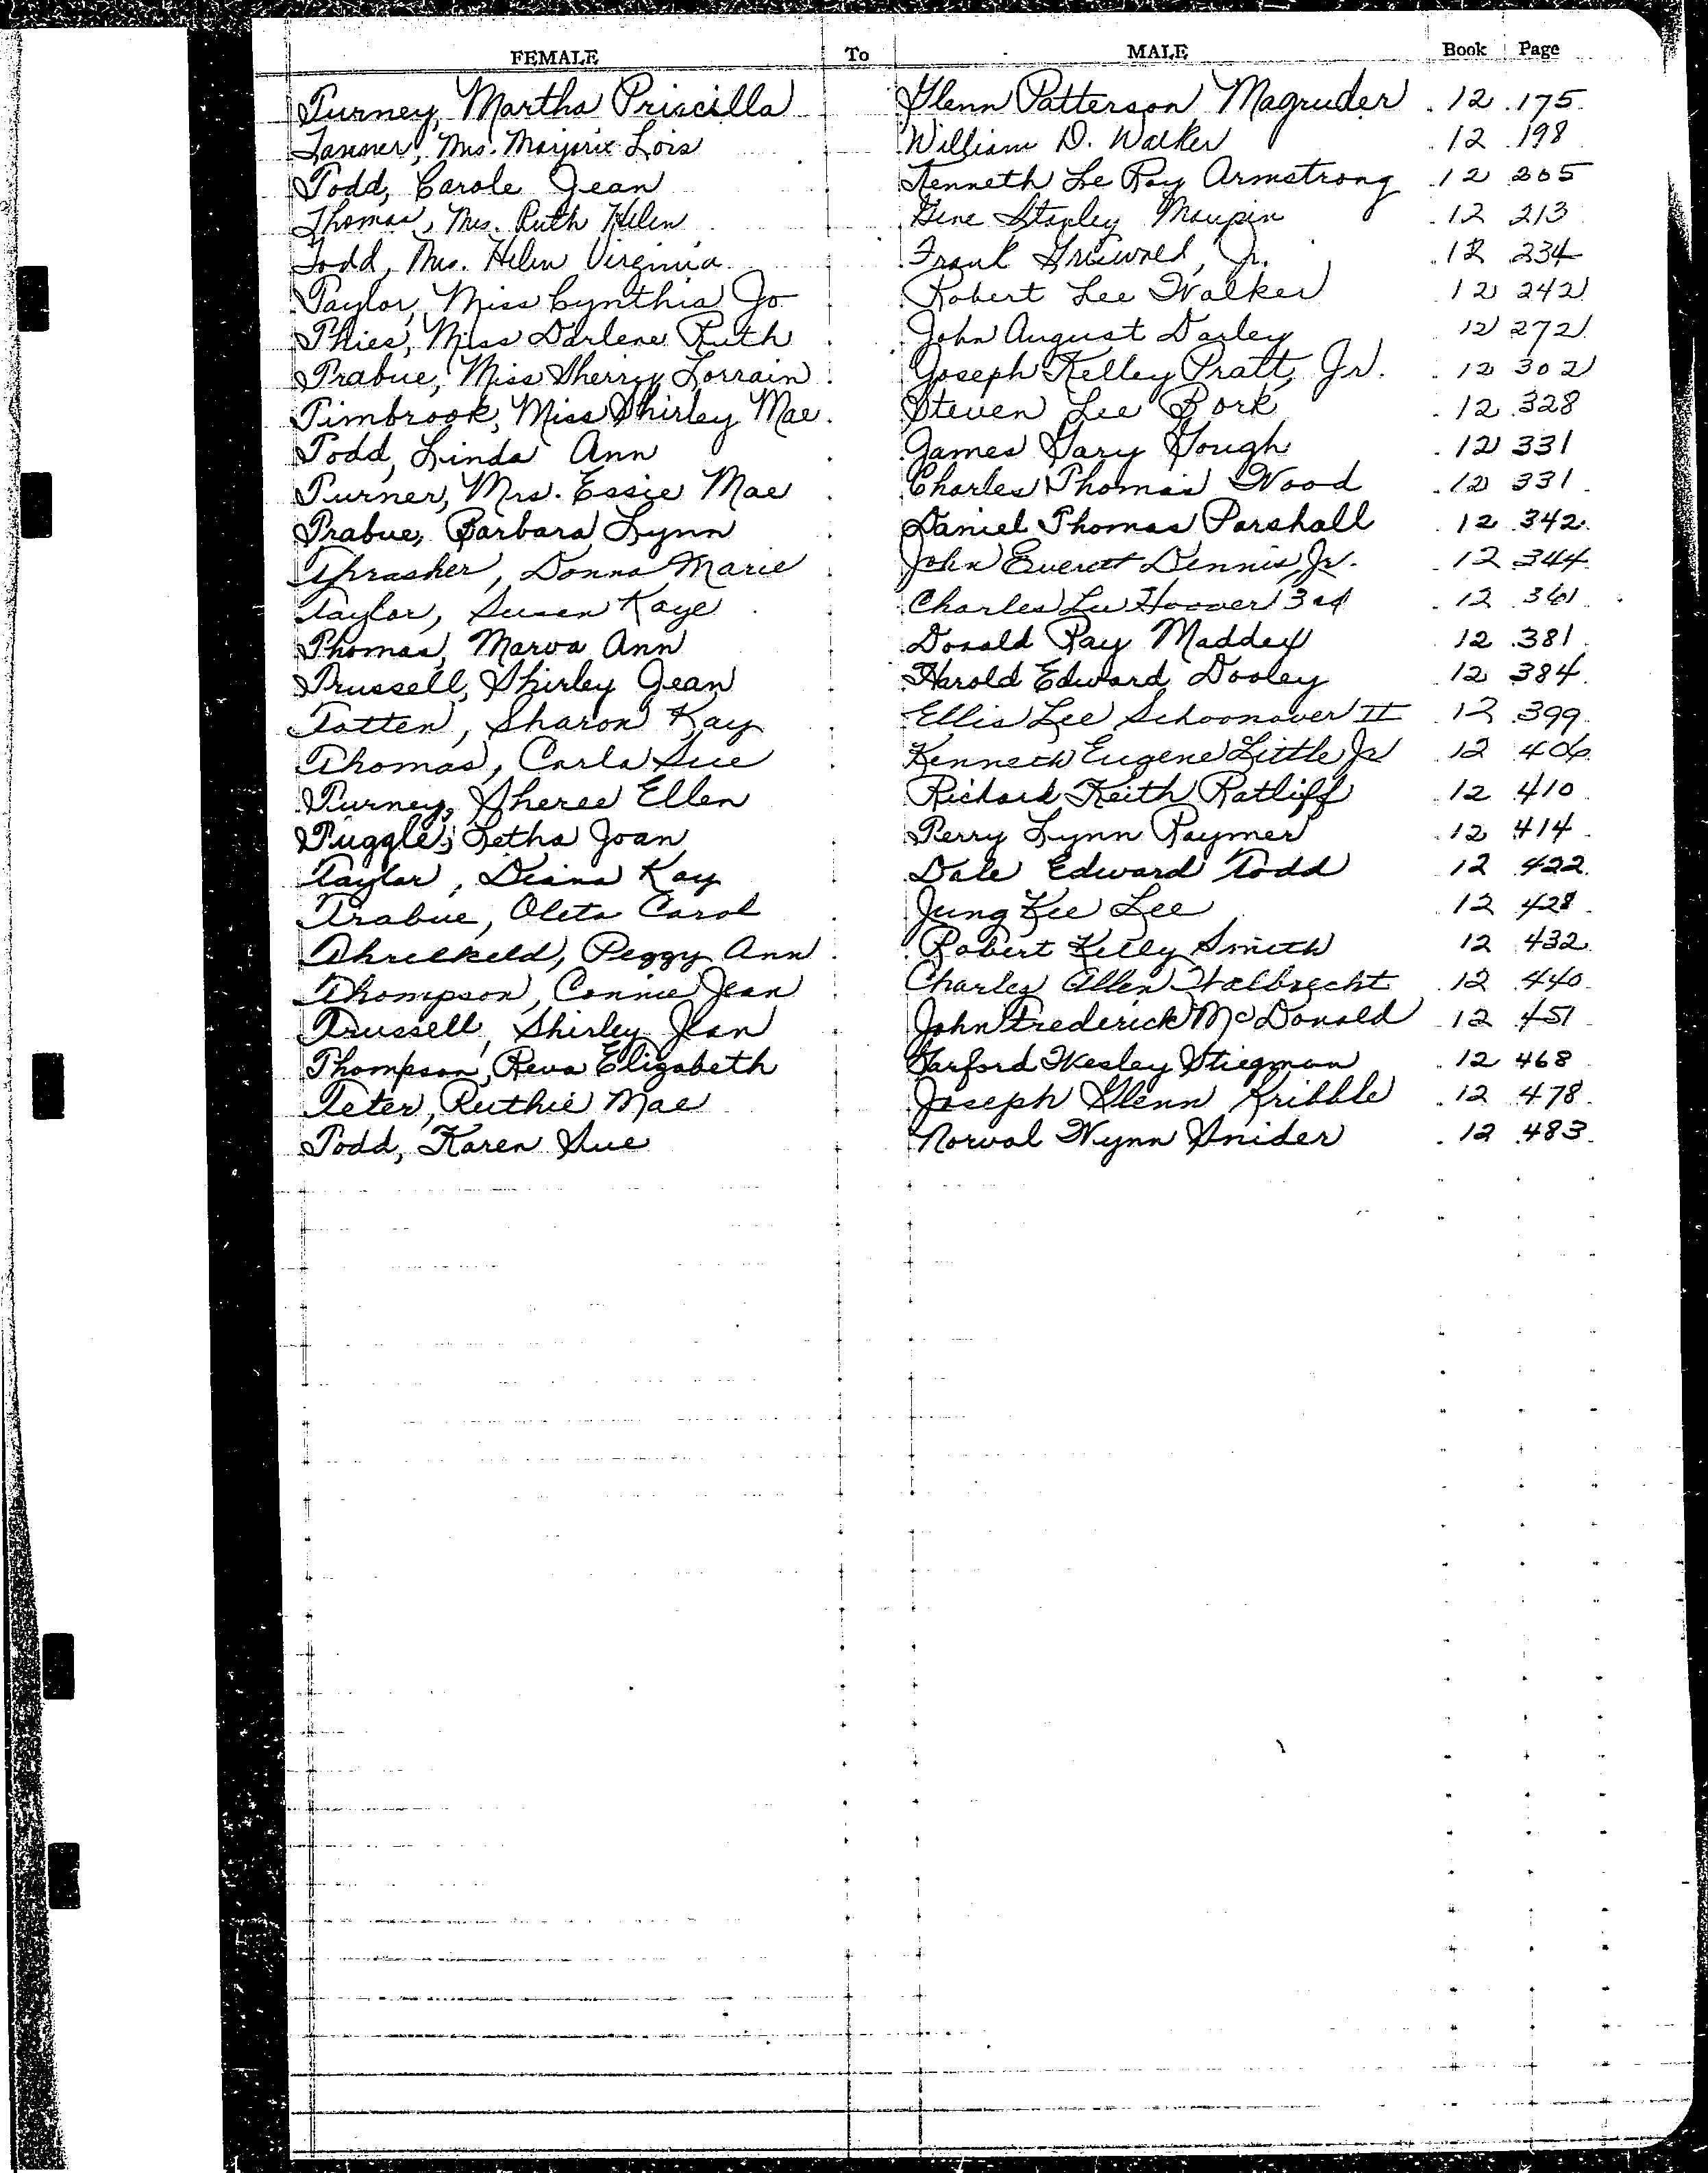 FEMALE To MALE Book Page
Turney, Martha Priscilla Glenn Patterson Magruder 12 175
Tanner, Mrs. Marjorie Lois William D. Walker 12 198
Todd, Carole Jean Kenneth Le Roy Armstrong 12 205
Thomas, Mrs. Ruth Helen Gene Stanley Maupin 12 213
Todd, Mrs. Helen Virginia Frank Griswold, Jr. 12 234
Taylor, Miss Cynthia Jo Robert Lee Walker 12 242
Thies, Miss Darlene Ruth John August Darley 12 272
Trabue, Miss Sherry Lorrain Joseph Kelley Pratt, Jr. 12 302
Timbrook, Miss Shirley Mae Steven Lee Bork 12 328
Todd, Linda Ann James Gary Gough 12 331
Turner, Mrs. Essie Mae Charles Thomas Wood 12 331
Trabue, Barbara Lynn Daniel Thomas Parshall 12 342
Thrasher, Donna Marie John Everett Dennis Jr. 12 344
Taylor, Susan Kaye Charles Lee Hoover 3rd 12 361
Thomas, Marva Ann Donald Ray Maddex 12 381
Trussell, Shirley Jean Harold Edward Dooley 12 384
Totten, Sharon Kay Ellis Lee Schoonover II 12 399
Thomas, Carla Sue Kenneth Eugene Little Jr 12 406
Turney, Sheree Ellen Richard Keith Ratliff 12 410
Tuggle, Letha Joan Perry Lynn Raymer 12 414
Taylor, Diana Kay Dale Edward Todd 12 422
Trabue, Oleta Carol Jung Kee Lee 12 428
Threlkeld, Peggy Ann Robert Kelly Smith 12 432
Thompson, Connie Jean Charles Allen Halbrecht 12 440
Trussell, Shirley Jean John Frederick McDonald 12 451
Thompson, Reva Elizabeth Wesley Stiegman 12 468
Teter, Ruthie Mae Joseph Glenn Kribble 12 478
Todd, Karen Sue Norval Wynn Snider 12 483